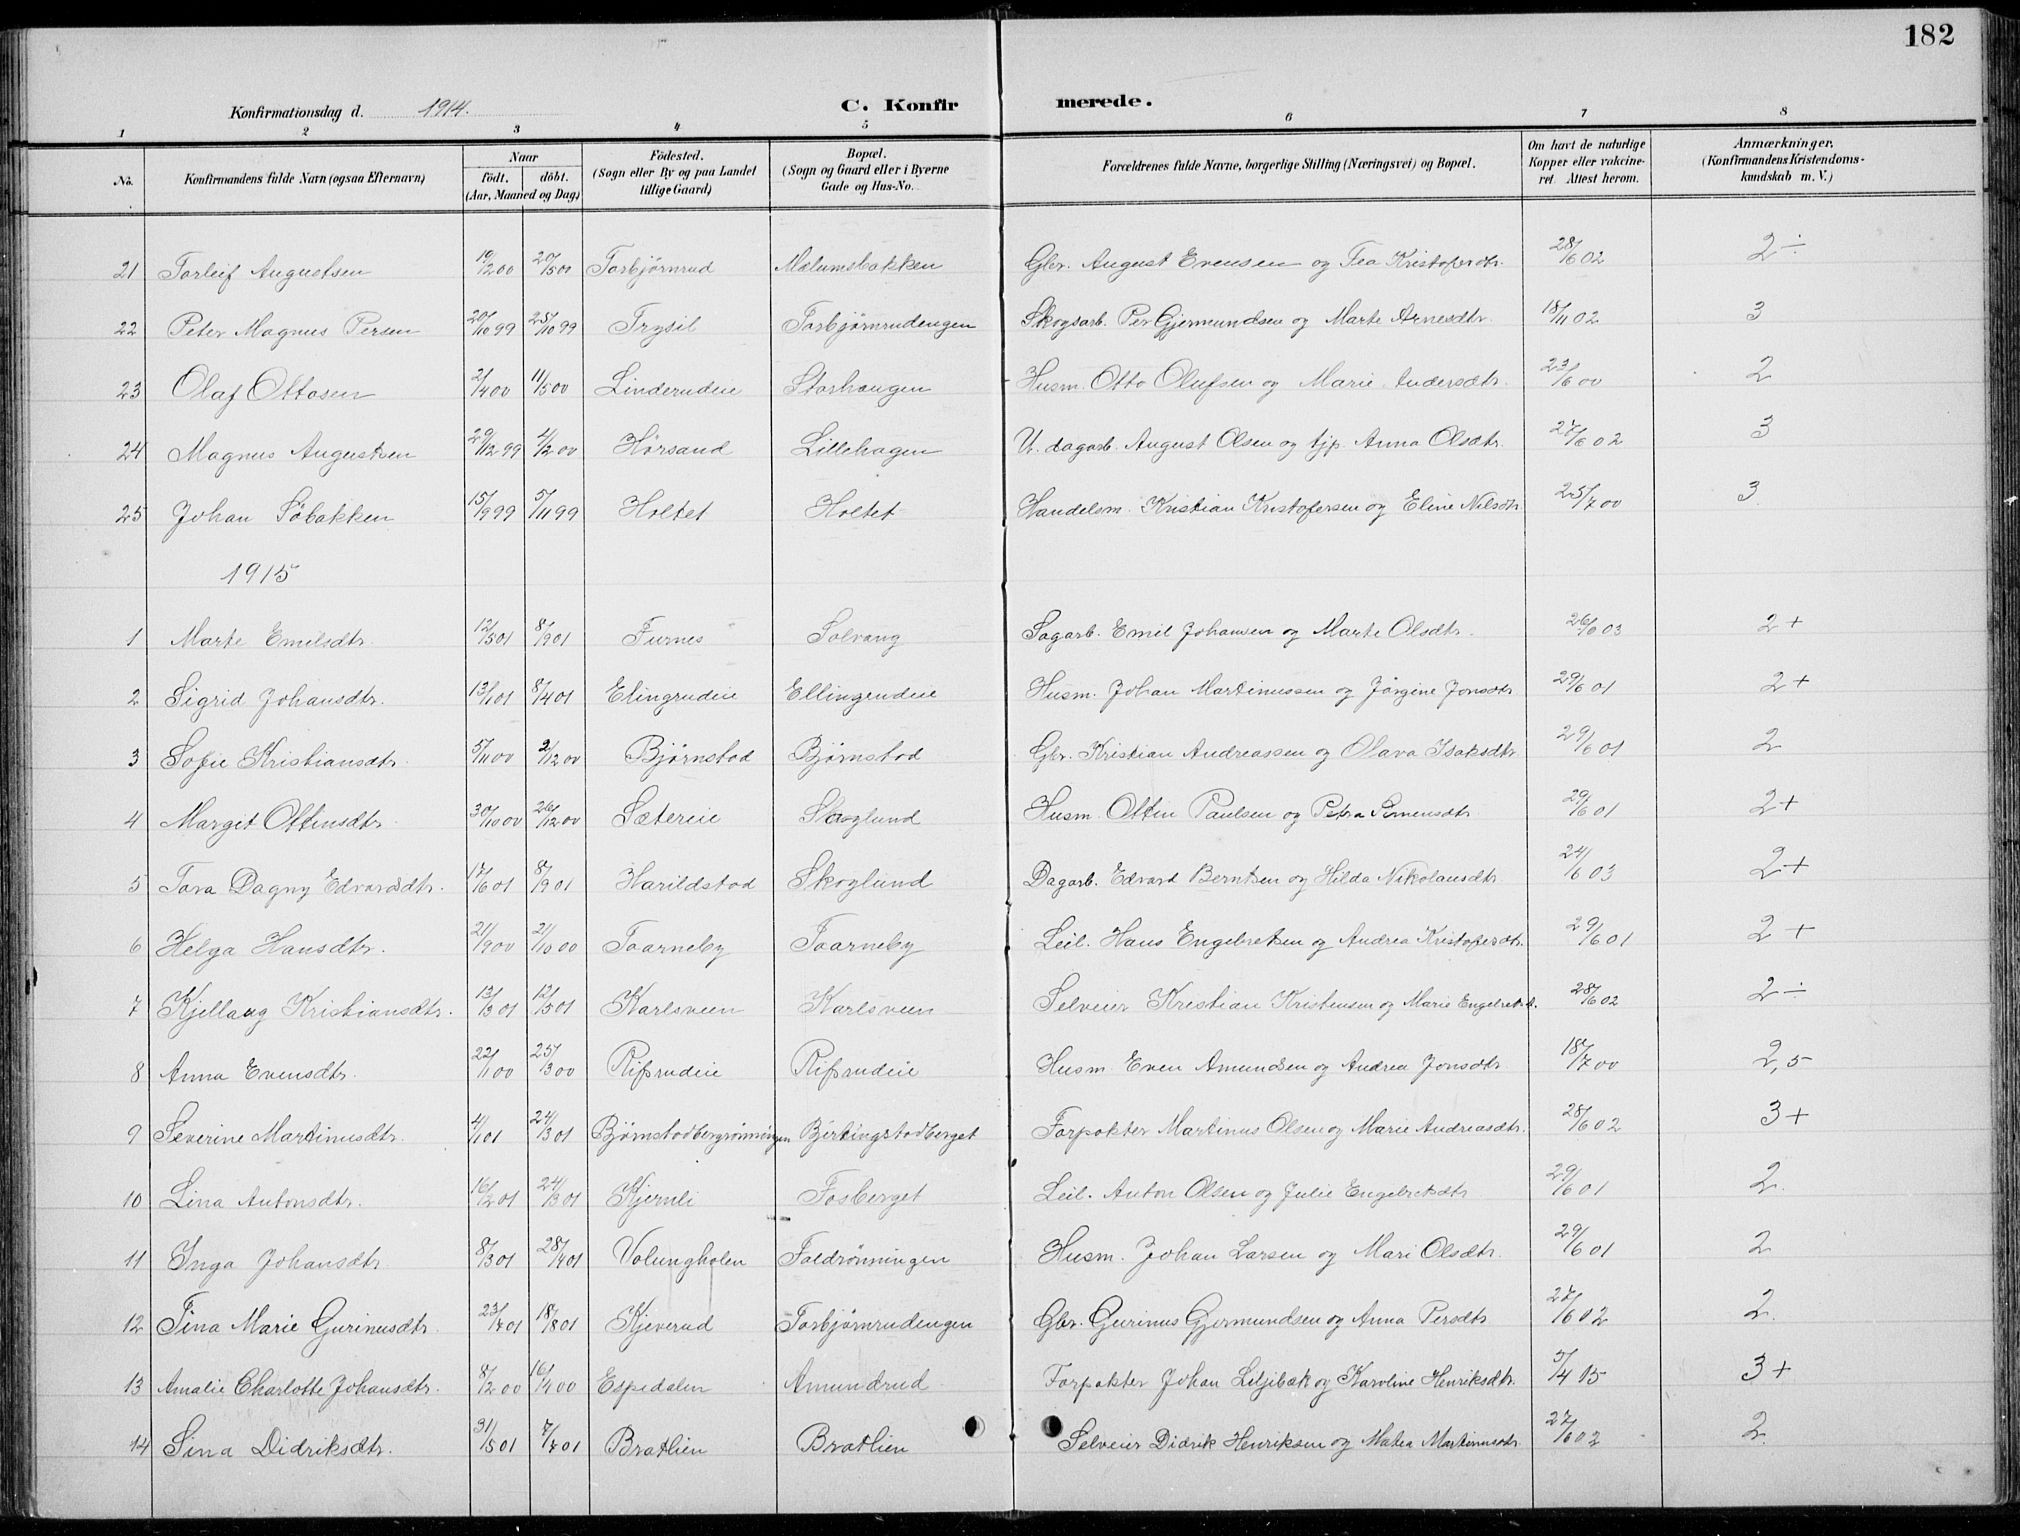 182
Konfirmationsdag d. 1914. C. Konfirmerede.
1 2 3 4 5 6 7 8
No. Konfirmandens fulde Navn (ogsaa Efternavn) Naar födt. döbt. (Aar, Maaned og Dag) Födested. (Sogn eller By og paa Landet tillige Gaard) Bopæl. (Sogn og Gaard eller i Byerne Gade og Hus-No. Forældrenes fulde Navne, borgerlige Stilling (Næringsvei) og Bopæl. Om havt de naturlige Kopper eller vakcineret. Attest herom. Anmærkninger, (Konfirmandens Kristendomskundskab m. V.)
21 Torleif Augustsen 19/2 00 20/5 00 Torbjørnrud Mælumsbakken Gbr. August Evensen og Tea Kristofersdtr. 28/6 02 2÷
22 Peter Magnus Persen 20/10 99 25/10 99 Trysil Torbjørnrudengen Skogsarb. Per Gjermundsen og Marte Arnesdtr. 18/11 02 3
23 Olaf Ottosen 2/4 00 11/5 00 Linderudeie Storhaugen Husm. Otto Olufsen og Marie Andersdtr. 23/6 00 2
24 Magnus Augustsen 29/12 99 4/2 00 Hørsand Lillehagen U. dagarb. August Olsen og tjp. Anna Olsdtr. 27/6 02 3
25 Johan Søbakken 15/9 99 5/11 99 Holtet Holtet Handelsm. Kristian Kristofersen og Eline Nilsdtr 25/7 00 3
1915
1 Marte Emilsdtr. 12/5 01 8/9 01 Furnes Solvang Sagarb. Emil Johansen og Marte Olsdtr. 26/6 03 2+
2 Sigrid Johansdtr. 13/1 01 8/4 01 Elingrudeie Ellingendeie Husm. Johan Martinussen og Jørgine Jonsdtr 29/6 01 2+
3 Sofie Kristiansdtr. 5/11 00 2/12 00 Bjørnstad Bjørnstad Gbr. Kristian Andreassen og Olava Isaksdtr. 29/6 01 2
4 Marget Ottinsdtr. 30/10 00 26/12 00 Sætereie Skoglund Husm. Ottin Paulsen og Petra Simensdtr 29/6 01 2+
5 Tora Dagny Edvardsdtr. 17/6 01 8/9 01 Harildstad Skoglund Dagarb. Edvard Berntsen og Hilda Nikolausdtr 24/6 03 2+
6 Helga Hansdtr. 21/9 00 21/10 00 Taarneby Taarneby Leil. Hans Engebretsen og Andrea Kristofersdtr. 29/6 01 2+
7 Kjellaug Kristiansdtr. 13/3 01 12/5 01 Karlsveen Karlsveen Selveier Kristian Kristensen og Marie Engebretsd. 28/6 02 2÷
8 Anna Evensdtr. 22/1 00 25/3 00 Rifsrudeie Rifsrudeie Husm Even Amundsen og Andrea Jonsdtr 18/7 00 2,5
9 Severine Martinusdtr. 4/1 01 24/3 01 Bjørnstadbergrønningen Bjertingstadberget Forpakter Martinus Olsen og Marie Andreasdtr. 28/6 02 3+
10 Lina Antonsdtr. 16/2 01 24/3 01 Kjernli Fosberget Leil. Anton Olsen og Julie Engebretsdtr 29/6 01 2
11 Inga Johansdtr. 8/3 01 28/4 01 Volungholen Faldrønningen Husm. Johan Larsen og Mari Olsdtr. 29/6 01 2
12 Tina Marie Gurinusdtr. 23/7 01 18/8 01 Kjeverud Torbjørnrudengen Gbr. Gurinus Gjermundsen og Anna Persdtr 27/6 02 2
13 Amalie Charlotte Johansdtr. 8/2 00 16/4 00 Espedalen Amundrud Forpakter Johan Liljibæk og Karoline Henriksdtr. 5/4 15 3+
14 Sina Didriksdtr. 31/5 01 7/7 01 Bratlien Bratlien Selveier Didrik Henriksen og Matea Martinusdtr 27/6 02 2